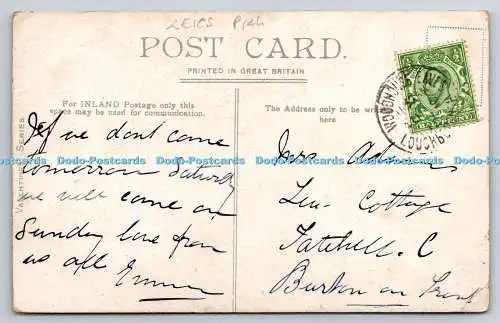 LEICS
POST CARD.
PRINTED IN GREAT BRITAIN
For INLAND Postage only this
space may be used for communication.
The Address only to be
here
VALENTINE'S SERIES.
If we dont come
tomorrow Saturday
we will come on
Sunday love from
us all Emma
Mrs Adams
Lea Cottage
Tatehill. C
Burton on Trent
WOODHOUSE EAVES
LOUGHBO
Dodo-Postcards Dodo-Postcards Dodo-Postcards Dodo-Postcards Dodo-Postcards